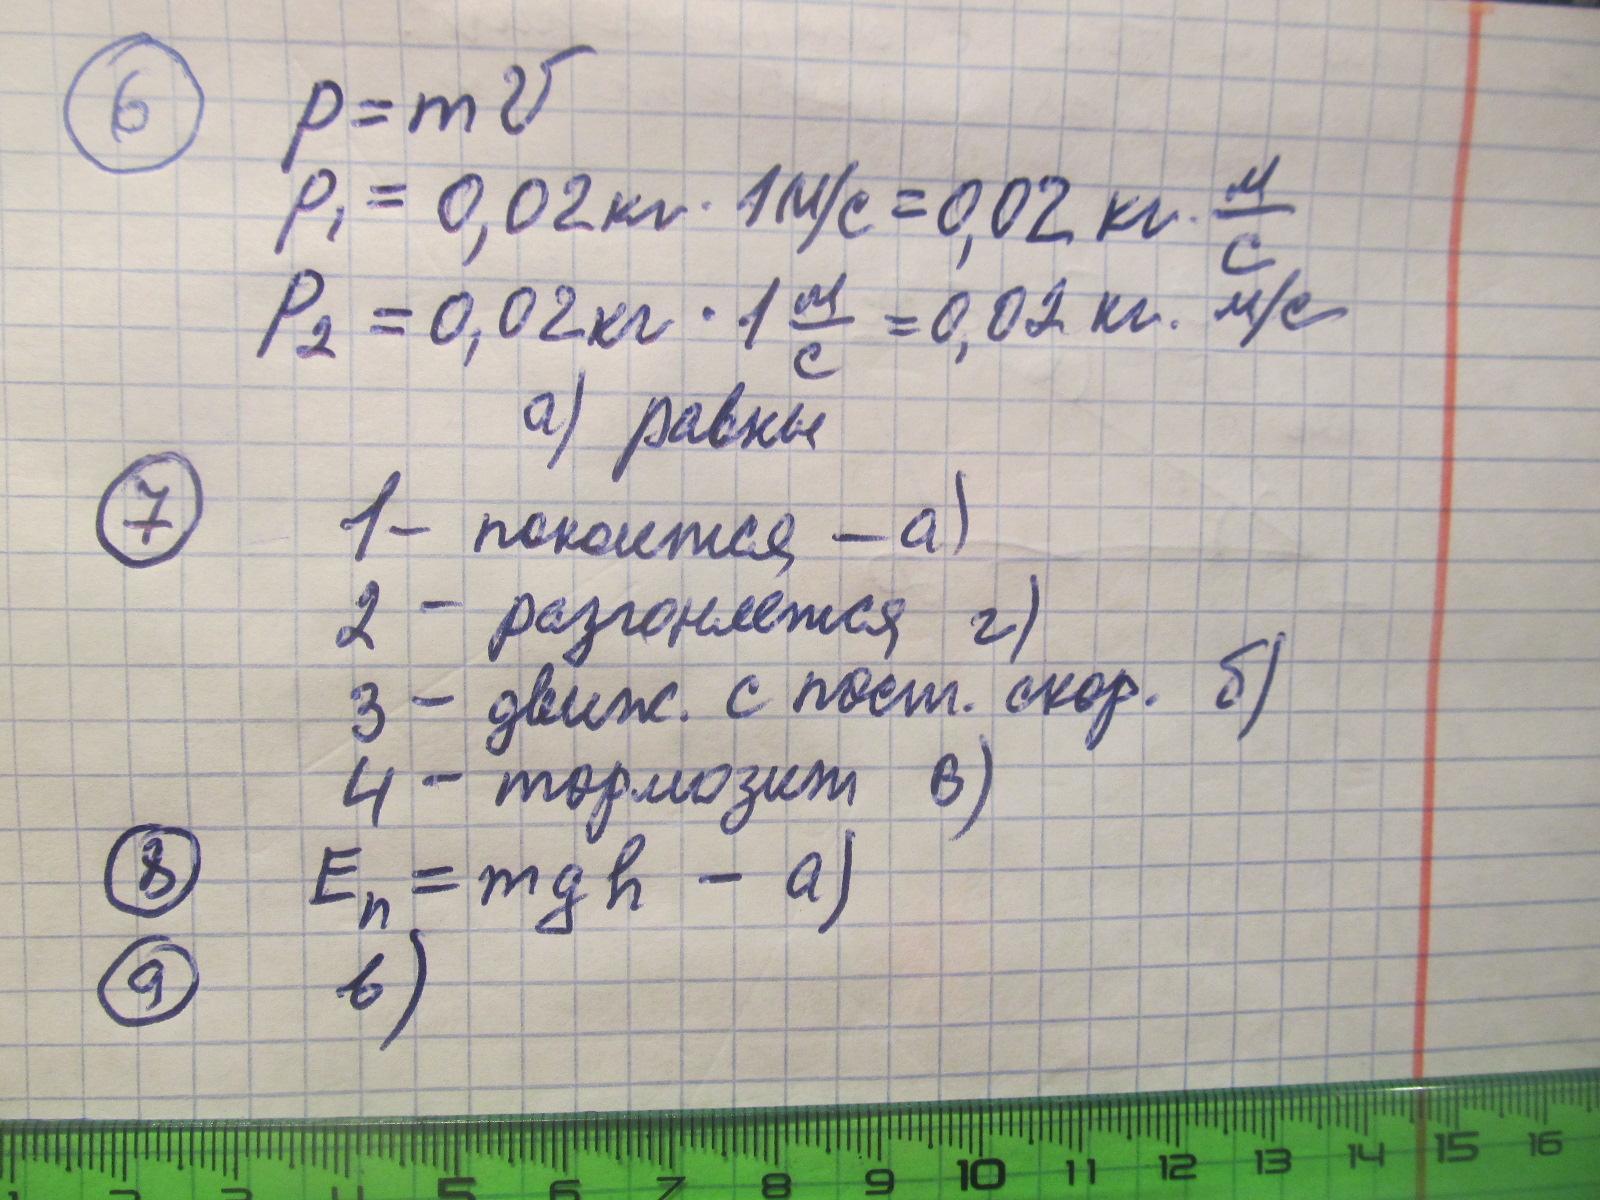 6 p = mv
p₁ = 0,02 кг · 1 м/с = 0,02 кг · м/с
p₂ = 0,02 кг · 1 м/с = 0,02 кг · м/с
а) равны
7 1 – покоится – а)
2 – разгоняется г)
3 – движ. с пост. скор. б)
4 – тормозит в)
8 Eп = mgh – а)
9 в)
1 2 3 4 5 6 7 8 9 10 11 12 13 14 15 16